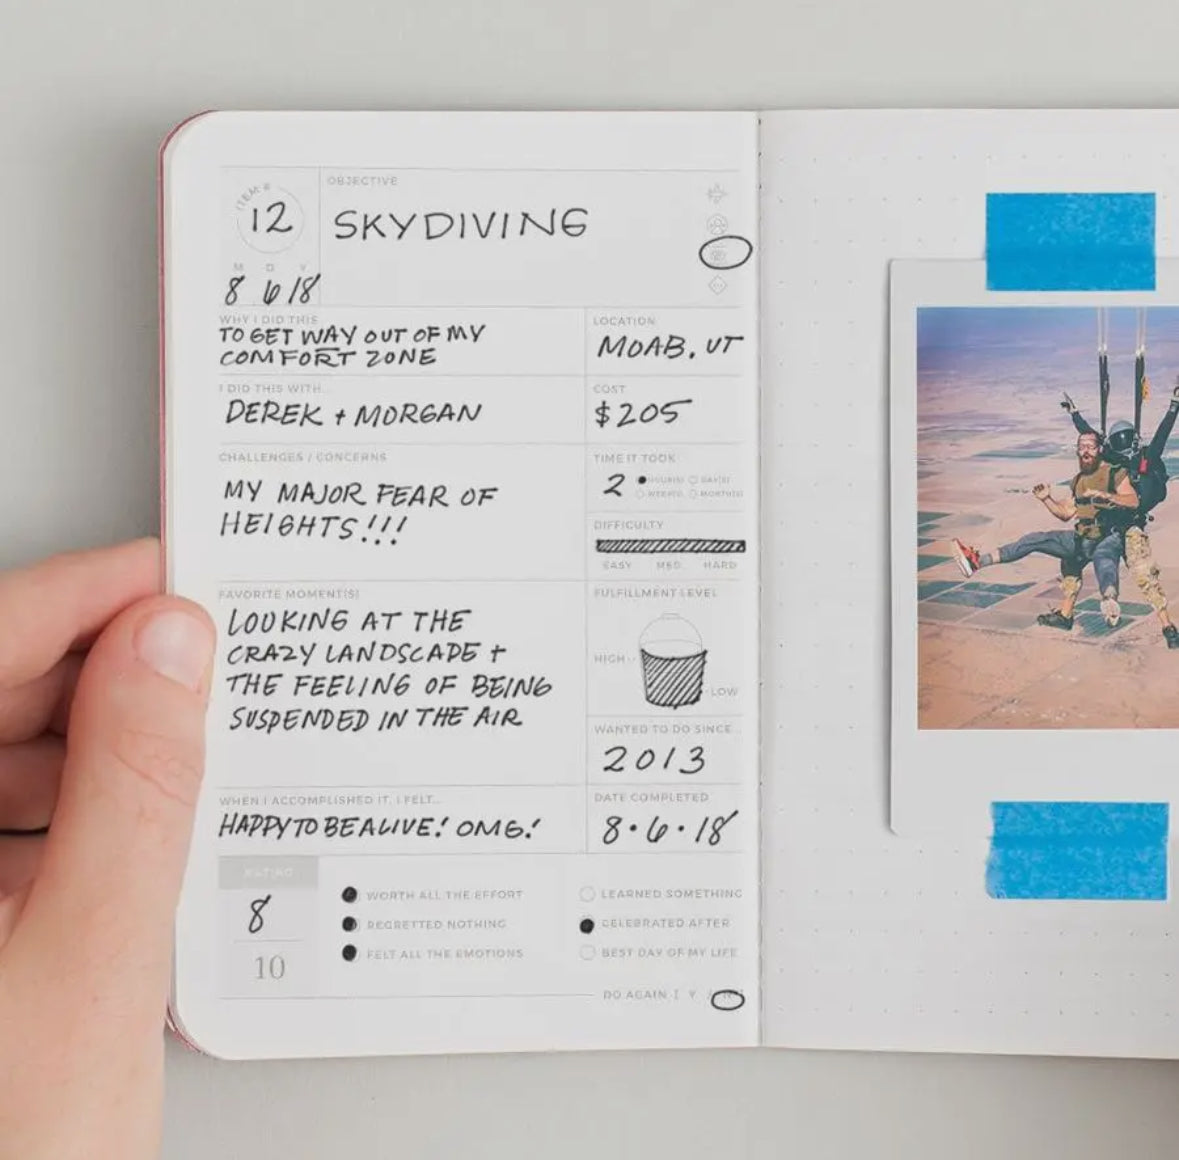 ITEM #
12
OBJECTIVE
SKYDIVING
M D Y
8 6 18
WHY I DID THIS
TO GET WAY OUT OF MY
COMFORT ZONE
LOCATION
MOAB, UT
I DID THIS WITH...
DEREK + MORGAN
COST
$205
CHALLENGES / CONCERNS
MY MAJOR FEAR OF
HEIGHTS!!!
TIME IT TOOK
2 HOUR(S) DAY(S)
WEEK(S) MONTH(S)
DIFFICULTY
EASY MED HARD
FAVORITE MOMENT(S)
LOOKING AT THE
CRAZY LANDSCAPE +
THE FEELING OF BEING
SUSPENDED IN THE AIR
FULFILLMENT LEVEL
HIGH
LOW
WANTED TO DO SINCE...
2013
WHEN I ACCOMPLISHED IT, I FELT...
HAPPY TO BE ALIVE! OMG!
DATE COMPLETED
8・6・18
RATING
8
10
WORTH ALL THE EFFORT
REGRETTED NOTHING
FELT ALL THE EMOTIONS
LEARNED SOMETHING
CELEBRATED AFTER
BEST DAY OF MY LIFE
DO AGAIN? Y / N